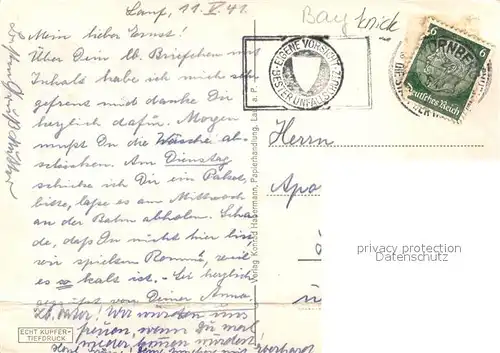 Lauf, 11.V.41.
Mein lieber Ernst!
Über Dein lb. Briefchen mit
Inhalt habe ich mich sehr
gefreut und danke Dir
herzlich dafür. Morgen
mußt Du die Wäsche ab-
schicken. Am Dienstag
schicke ich Dir ein Paket,
bitte, lass es am Mittwoch
an der Bahn abholen. Scha-
de, daß Du nicht hier bist,
wir spielten Rommé, weil
es so kalt ist. - Sei herzlich
gegrüßt von Deiner Anna
Lb. Vater! Wir würden uns
freuen, wenn Du mal
wieder kommen würdest!
Eberhard
Bay
EIGENE VORSICHT
BESTER UNFALLSCHUTZ
Lauf a. P.
NÜRNBERG
6
Deutsches Reich
Herrn
Apo
Verlag Konrad Habermann, Papierhandlung, Lauf a. P.
ECHT KUPFER-
TIEFDRUCK
privacy protection
Datenschutz